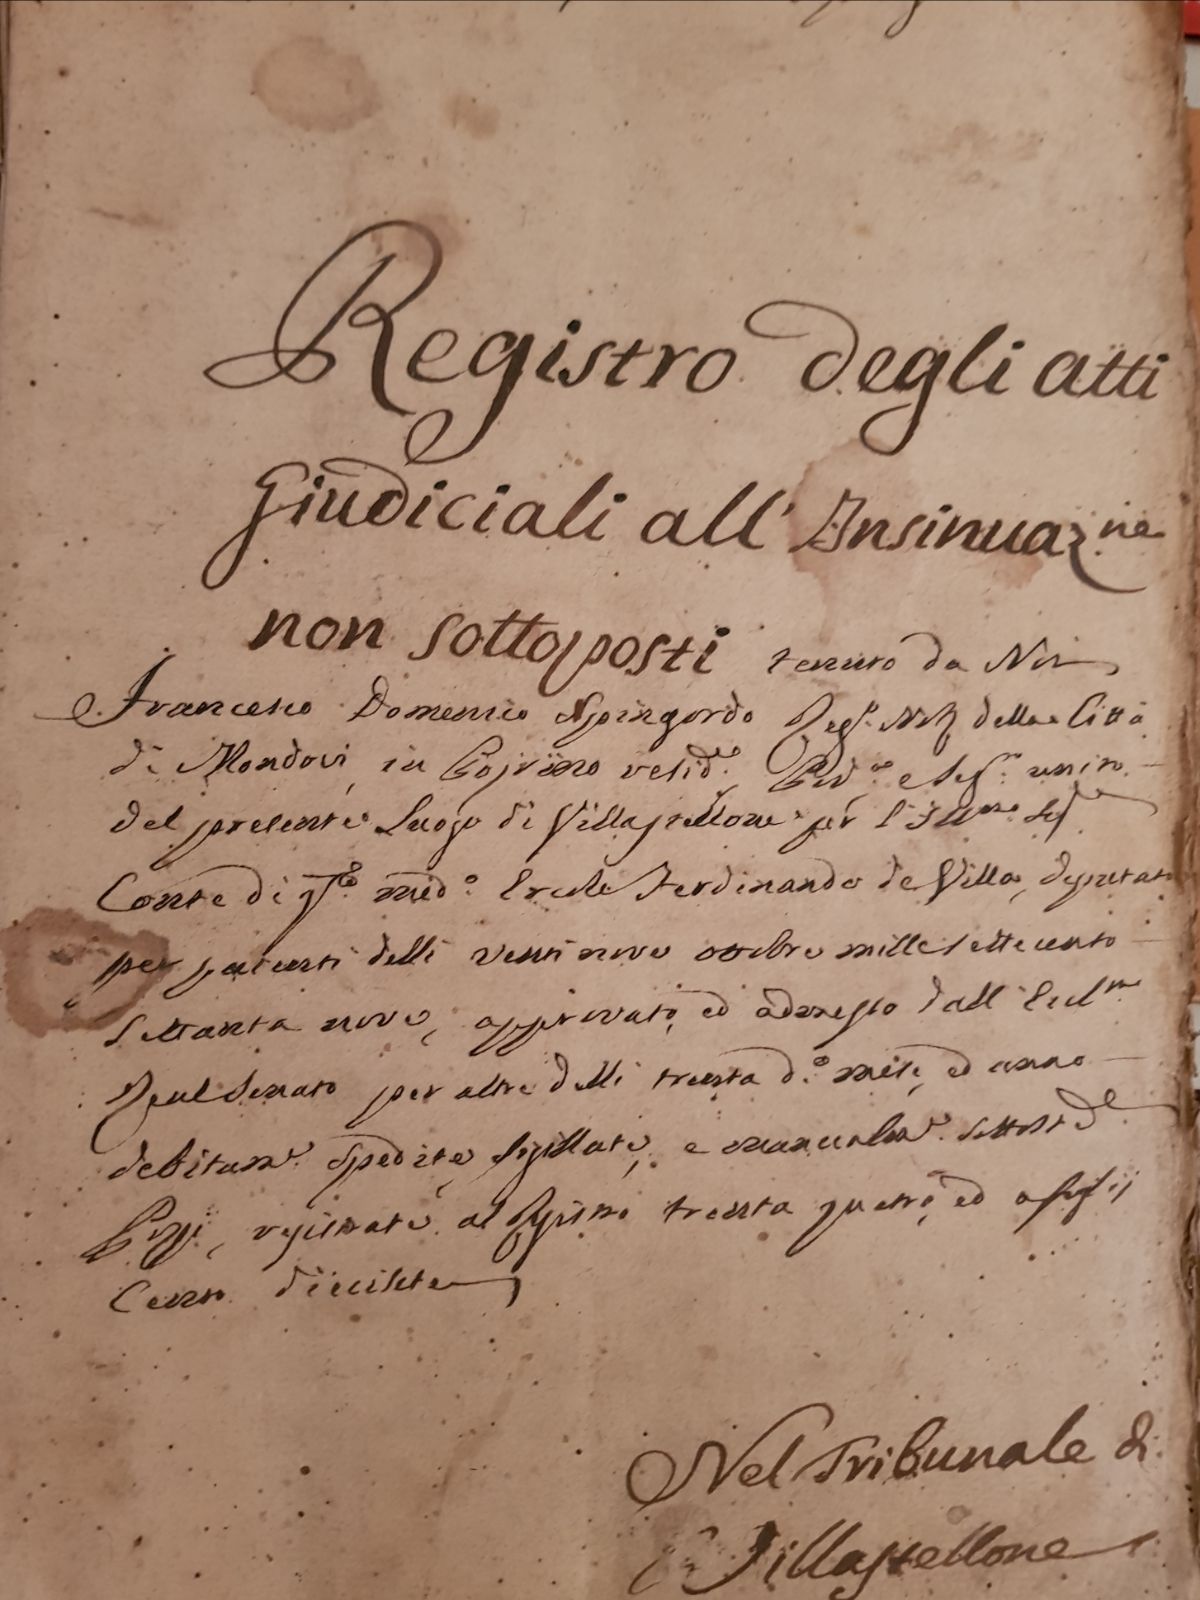 Registro degli atti
Giudiciali all' Insinuaz.ne
non sottoposti tenuto da Noi
Francesco Domenico Spingardo Reg.o Not.o della Città
di Mondovì, in Poyrino resid.te e Seg.ro unito
del presente Luogo di Villastellone per l'Ill.mo Sig.
Conte di q.to med.o Ercole Ferdinando de Villa, deputato
per patenti delli venti nove ottobre mille settecento
settanta nove, approvato, ed ammesso dall' Ecc.mo
Real Senato per altre delli trenta d.o mese, ed anno
debitam.e spedite, sigillate, e manualm.e sottost.e
registrate al Registro trenta quatro, ed a fogli
Cento diecisette
Nel Tribunale di
Villastellone